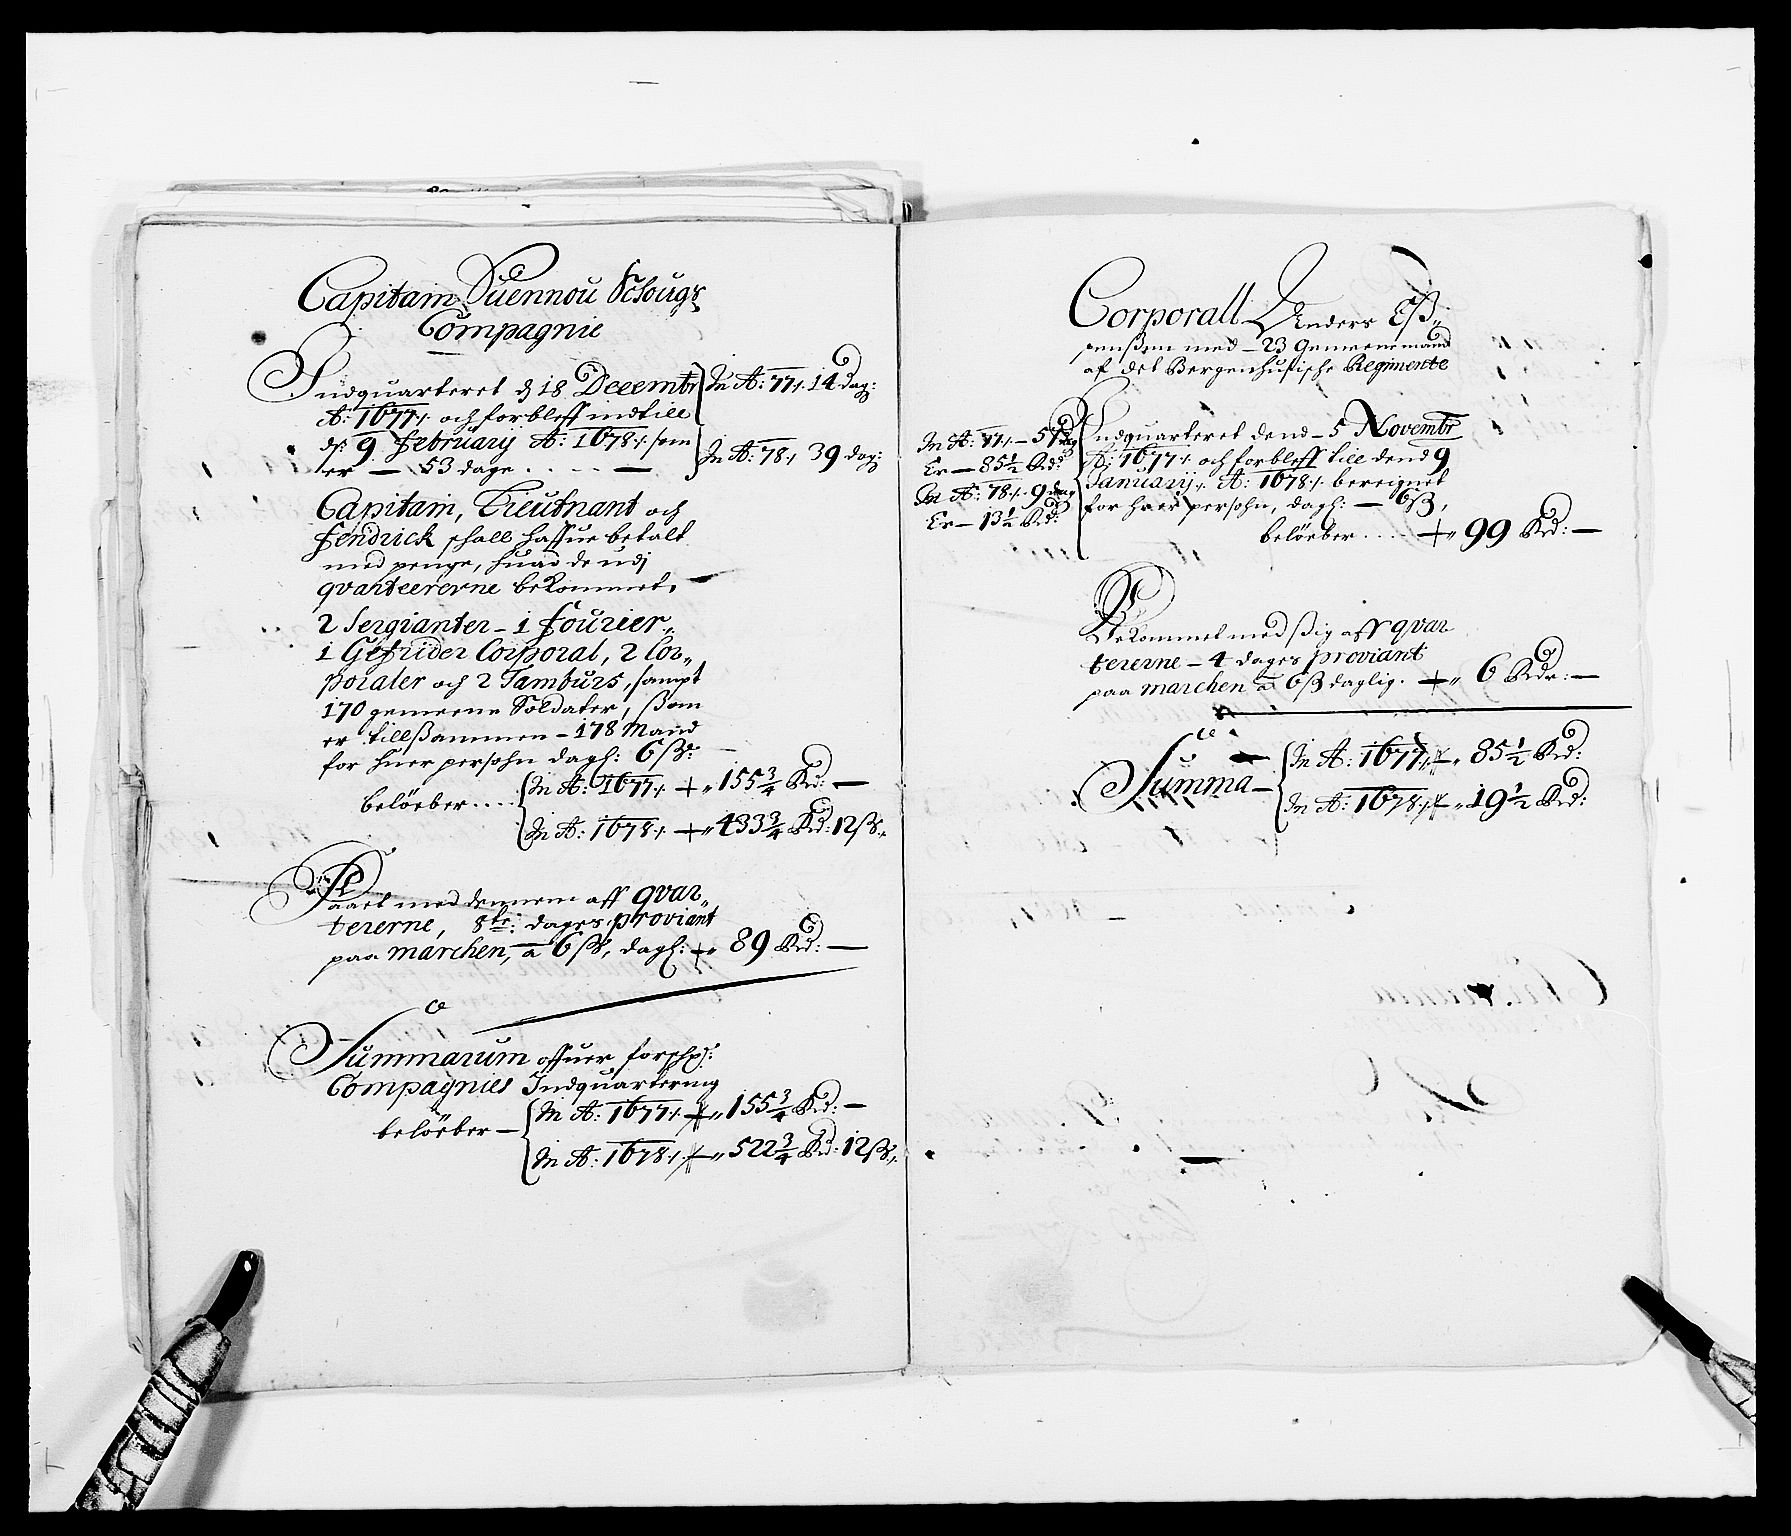 Capitain Suennou Schougs
Compagnie
Indquarteret d 18 Decembr
A: 1677 /. och forbleff indtill
d: 9 February A: 1678 /. som
er — 53 dage . . . . —
In A: 77 /. 14 dag:
In A: 78 /. 39 dag:
Capitain, Lieutnant och
fendrick schall haffue betalt
med penge, huad de udj
qvarteererne bekommet.
2 Sergianter — 1 fourier,,
1 Gefrider Corporal, 2 Cor,,
poraler och 2 Tamburs, sampt
170 gemeene Soldater, ßom
er tillßammen — 178 Mand
for huer persohn dagl: 6 ß:
belöeber . . . .
In A: 1677 /. +,, 155 3/4 Rd: —
In A: 1678 /. +,, 433 3/4 Rd: 12 ß.
Faaet med dennem aff qvar,,
tererne, 8te: dages proviant
paa marchen, a 6 ß, dagl: +,, 89 Rd: —
Summarum offuer forschr:
Compagnies Indquartering
belöeber —
In A: 1677 /. +,, 155 3/4 Rd: —
In A: 1678 /. +,, 522 3/4 Rd: 12 ß.
Corporall Anders Eß,,
penßen med — 23 gemeene mand
af det Bergenhusische Regimente
In A: 77 /. — 57 dag
Er — 85 1/2 Rd:
In A: 78 /. 9 dag
Er — 13 1/2 Rd:
Indquarteret dend — 5 Novembr
A: 1677 /. och forbleff till dend 9
Januarij A: 1678 /. bereignet
for huer persohn, dagl: — 6 ß,
belöeber . . . . +,, 99 Rd: —
Bekommet med ßig aff qvar
tererne — 4 dages proviant
paa marchen a 6 ß daglig. +,, 6 Rdr: —
Summa —
In A: 1677 ,, 85 1/2 Rd:
In A: 1678 /. ,, 19 1/2 Rd: